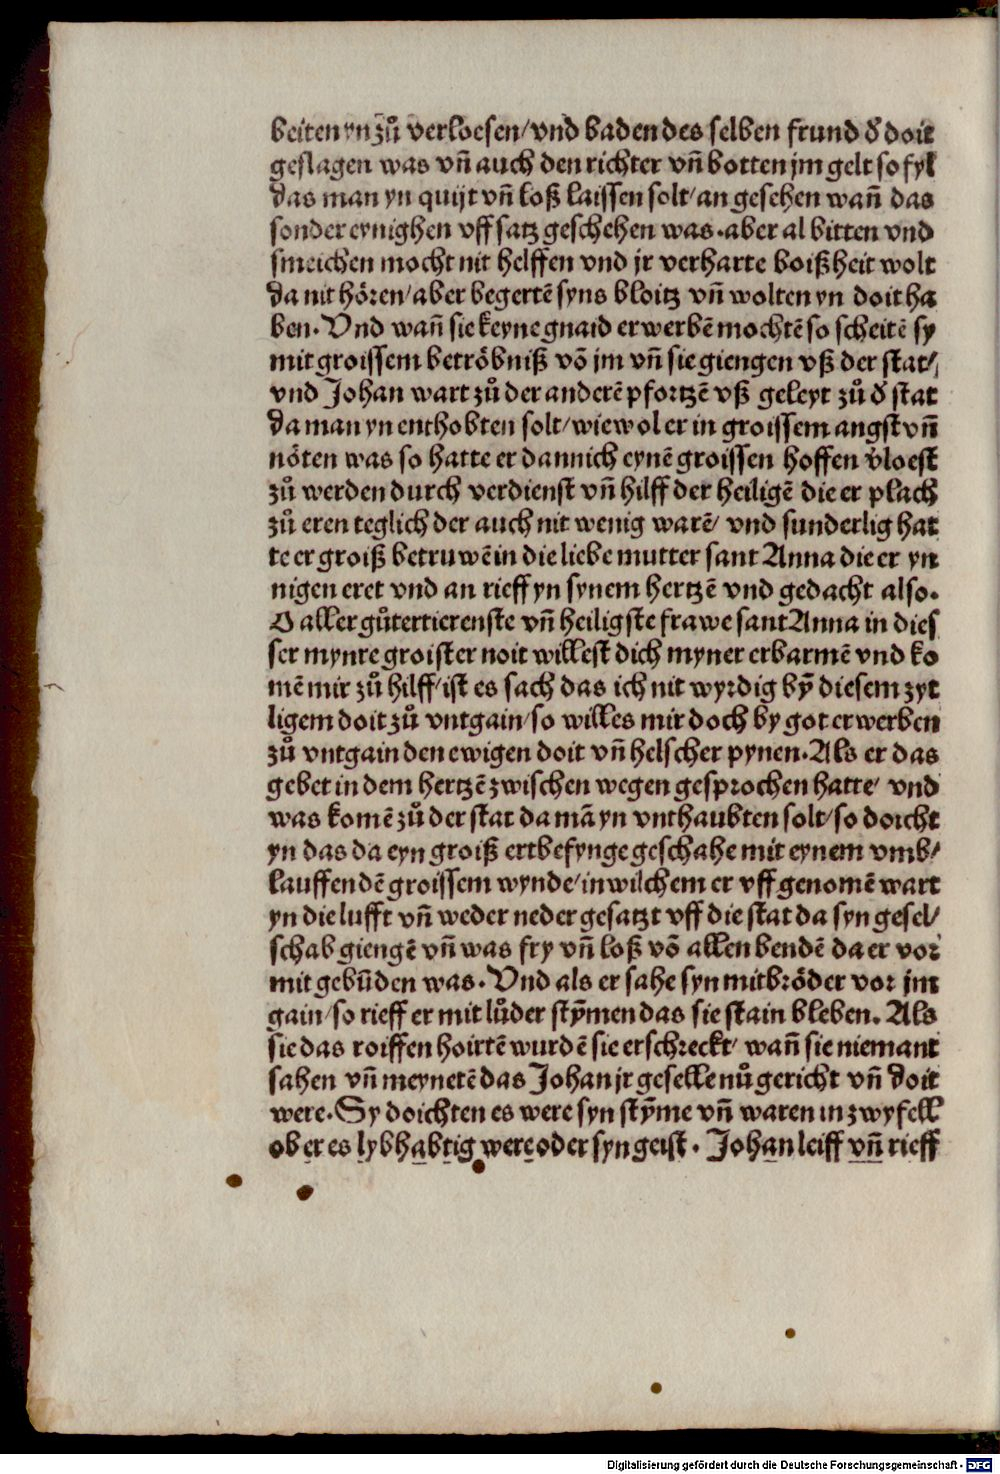 beiten yn zů verloesen/ vnd baden des selben frund ð doit
geslagen was vñ auch den richter vñ botten jm gelt so fyl
das man yn quijt vñ loß laissen solt/ an gesehen wañ das
sonder eynighen vff satz geschehen was. aber al bitten vnd
smeichen mocht nit helffen vnd jr verharte boißheit wolt
da nit hören/ aber begertē syns bloitz vñ wolten yn doit ha
ben. Vnd wañ sie keyne gnaid erwerbē mochtē so scheitē sy
mit groissem betröbniß vō jm vñ sie giengen vß der stat/
vnd Johan wart zů der anderē pfortzē vß geleyt zů ð stat
da man yn enthobten solt/ wiewol er in groissem angst vñ
nöten was so hatte er dannich eynē groissen hoffen v̓loest
zů werden durch verdienst vñ hilff der heiligē die er plach
zů eren teglich der auch nit wenig warē/ vnd sunderlig hat
te er groiß betruwē in die liebe mutter sant Anna die er yn
nigen eret vnd an rieff yn synem hertzē vnd gedacht also.
O aller gůtertierenste vñ heiligste frawe sant Anna in dies
ser mynre groister noit willest dich myner erbarmē vnd ko
mē mir zů hilff/ ist es sach das ich nit wyrdig bȳ diesem zyt
ligem doit zů vntgain/ so willes mir doch by got erwerben
zů vntgain den ewigen doit vñ helscher pynen. Als er das
gebet in dem hertzē zwischen wegen gesprochen hatte/ vnd
was komē zů der stat da mā yn vnthaubten solt/ so dorcht
yn das da eyn groiß ertbefynge geschahe mit eynem vmb/
lauffendē groissem wynde/ in wilchem er vff genomē wart
yn die lufft vñ weder neder gesatzt vff die stat da syn gesel/
schab giengē vñ was fry vñ loß vō allen bendē da er vor
mit gebūden was. Vnd als er sahe syn mitbröder vor jm
gain/ so rieff er mit lůder stȳmen das sie stain bleben. Als
sie das roiffen hoirtē wurdē sie erschreckt/ wañ sie niemant
sahen vñ meynetē das Johan jr geselle nů gericht vñ doit
were. Sy doichten es were syn stȳme vñ waren in zwyfell
ob er es lybhabtig were oder syn geist. Johan leiff vñ rieff
Digitalisierung gefördert durch die Deutsche Forschungsgemeinschaft - DFG